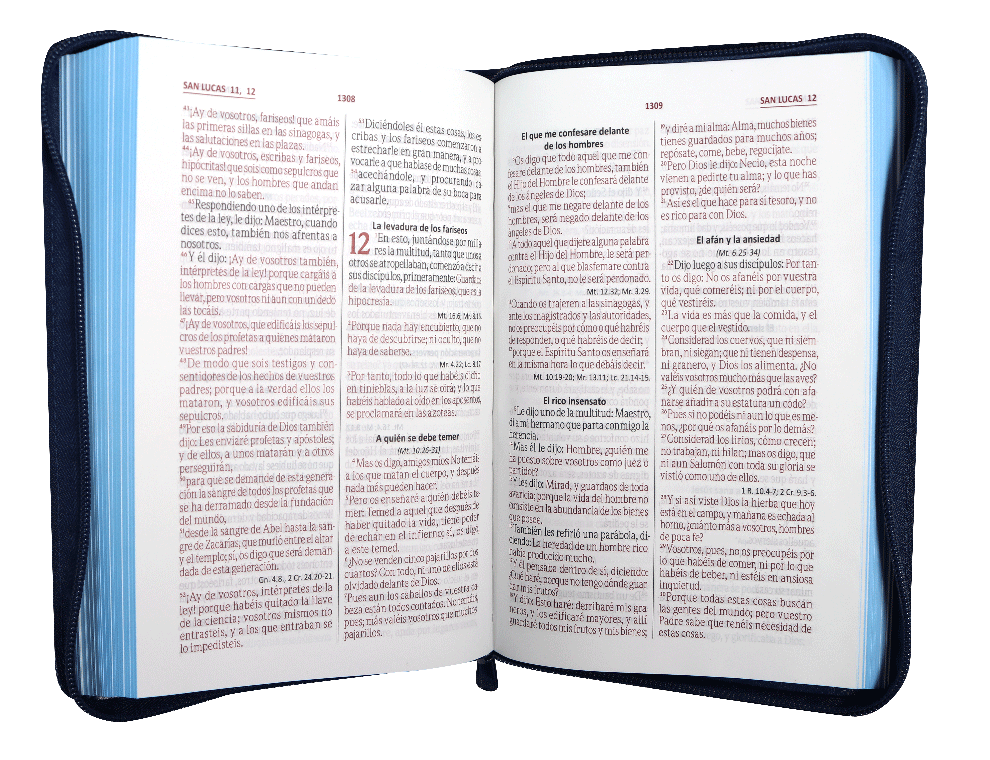 SAN LUCAS 11, 12
1308
¡Ay de vosotros, fariseos! que amáis
las primeras sillas en las sinagogas, y
las salutaciones en las plazas.
¡Ay de vosotros, escribas y fariseos,
hipócritas! que sois como sepulcros que
no se ven, y los hombres que andan
encima no lo saben.
Respondiendo uno de los intérpre-
tes de la ley, le dijo: Maestro, cuando
dices esto, también nos afrentas a
nosotros.
Y él dijo: ¡Ay de vosotros también,
intérpretes de la ley! porque cargáis a
los hombres con cargas que no pueden
llevar, pero vosotros ni aun con un dedo
las tocáis.
¡Ay de vosotros, que edificáis los sepul-
cros de los profetas a quienes mataron
vuestros padres!
De modo que sois testigos y con-
sentidores de los hechos de vuestros
padres; porque a la verdad ellos los
mataron, y vosotros edificáis sus
sepulcros.
Por eso la sabiduría de Dios también
dijo: Les enviaré profetas y apóstoles;
y de ellos, a unos matarán y a otros
perseguirán,
para que se demande de esta genera-
ción la sangre de todos los profetas que
se ha derramado desde la fundación
del mundo,
desde la sangre de Abel hasta la san-
gre de Zacarías, que murió entre el altar
y el templo; sí, os digo que será deman-
dada de esta generación.
Gn. 4.8., 2 Cr. 24.20-21.
¡Ay de vosotros, intérpretes de la
ley! porque habéis quitado la llave
de la ciencia; vosotros mismos no
entrasteis, y a los que entraban se
lo impedisteis.
Diciéndoles él estas cosas, los es-
cribas y los fariseos comenzaron a
estrecharle en gran manera, y a pro-
vocarle a que hablase de muchas cosas
acechándole, y procurando ca-
zar alguna palabra de su boca para
acusarle.
La levadura de los fariseos
12 En esto, juntándose por milla-
res la multitud, tanto que unos a
otros se atropellaban, comenzó a decir a
sus discípulos, primeramente: Guardaos
de la levadura de los fariseos, que es la
hipocresía.
Mt. 16.6; Mr. 8.15.
Porque nada hay encubierto, que no
haya de descubrirse; ni oculto, que no
haya de saberse.
Mr. 4.22; Lc. 8.17
Por tanto, todo lo que habéis dicho
en tinieblas, a la luz se oirá; y lo que
habéis hablado al oído en los aposentos,
se proclamará en las azoteas.
A quién se debe temer
(Mt. 10.26-31)
Mas os digo, amigos míos: No temáis
a los que matan el cuerpo, y después
nada más pueden hacer.
Pero os enseñaré a quién debéis te-
mer: Temed a aquel que después de
haber quitado la vida, tiene poder
de echar en el infierno; sí, os digo,
a este temed.
¿No se venden cinco pajarillos por dos
cuartos? Con todo, ni uno de ellos está
olvidado delante de Dios.
Pues aun los cabellos de vuestra ca-
beza están todos contados. No temáis,
pues; más valéis vosotros que muchos
pajarillos.
1309
SAN LUCAS 12
El que me confesare delante
de los hombres
Os digo que todo aquel que me con-
fesare delante de los hombres, también
el Hijo del Hombre le confesará delante
de los ángeles de Dios;
mas el que me negare delante de los
hombres, será negado delante de los
ángeles de Dios.
A todo aquel que dijere alguna palabra
contra el Hijo del Hombre, le será per-
donado; pero al que blasfemare contra
el Espíritu Santo, no le será perdonado.
Mt. 12.32; Mr. 3.29.
Cuando os trajeren a las sinagogas, y
ante los magistrados y las autoridades,
no os preocupéis por cómo o qué habréis
de responder, o qué habréis de decir;
porque el Espíritu Santo os enseñará
en la misma hora lo que debáis decir.
Mt. 10.19-20; Mr. 13.11; Lc. 21.14-15.
El rico insensato
Le dijo uno de la multitud: Maestro,
di a mi hermano que parta conmigo la
herencia.
Mas él le dijo: Hombre, ¿quién me
ha puesto sobre vosotros como juez o
partidor?
Y les dijo: Mirad, y guardaos de toda
avaricia; porque la vida del hombre no
consiste en la abundancia de los bienes
que posee.
También les refirió una parábola, di-
ciendo: La heredad de un hombre rico
había producido mucho.
Y él pensaba dentro de sí, diciendo:
¿Qué haré, porque no tengo dónde guar-
dar mis frutos?
Y dijo: Esto haré: derribaré mis gra-
neros, y los edificaré mayores, y allí
guardaré todos mis frutos y mis bienes;
y diré a mi alma: Alma, muchos bienes
tienes guardados para muchos años;
repósate, come, bebe, regocíjate.
Pero Dios le dijo: Necio, esta noche
vienen a pedirte tu alma; y lo que has
provisto, ¿de quién será?
Así es el que hace para sí tesoro, y no
es rico para con Dios.
El afán y la ansiedad
(Mt. 6.25-34)
Dijo luego a sus discípulos: Por tan-
to os digo: No os afanéis por vuestra
vida, qué comeréis; ni por el cuerpo,
qué vestiréis.
La vida es más que la comida, y el
cuerpo que el vestido.
Considerad los cuervos, que ni siem-
bran, ni siegan; que ni tienen despensa,
ni granero, y Dios los alimenta. ¿No
valéis vosotros mucho más que las aves?
¿Y quién de vosotros podrá con afa-
narse añadir a su estatura un codo?
Pues si no podéis ni aun lo que es me-
nos, ¿por qué os afanáis por lo demás?
Considerad los lirios, cómo crecen;
no trabajan, ni hilan; mas os digo, que
ni aun Salomón con toda su gloria se
vistió como uno de ellos.
1 R. 10.4-7; 2 Cr. 9.3-6.
Y si así viste Dios la hierba que hoy
está en el campo, y mañana es echada al
horno, ¿cuánto más a vosotros, hombres
de poca fe?
Vosotros, pues, no os preocupéis por
lo que habéis de comer, ni por lo que
habéis de beber, ni estéis en ansiosa
inquietud.
Porque todas estas cosas buscan
las gentes del mundo; pero vuestro
Padre sabe que tenéis necesidad de
estas cosas.